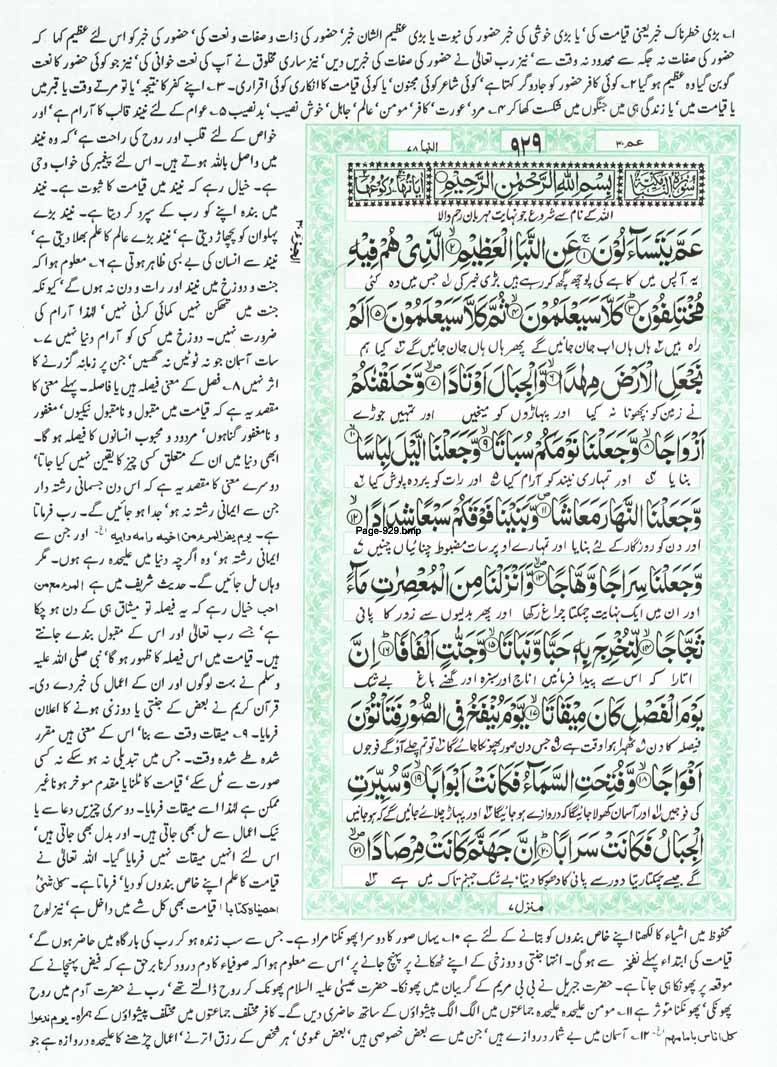 ۱۔ بڑی خطرناک خبر یعنی قیامت کی' یا بڑی خوشی کی خبر حضور کی نبوت یا بڑی عظیم الشان خبر' حضور کی ذات و صفات و نعت کی' حضور کی خبر کو اس لئے عظیم کہا کہ
حضور کی صفات نہ جگہ سے محدود نہ وقت سے' نیز رب تعالیٰ نے حضور کی صفات کی خبریں دیں' نیز ساری مخلوق نے آپ کی نعت خوانی کی' نیز جو کوئی حضور کا نعت
گو بن گیا وہ عظیم ہو گیا ۲۔ کوئی کافر حضور کو جادوگر کہتا ہے' کوئی شاعر کوئی مجنون' یا کوئی قیامت کا انکاری کوئی اقراری۔ ۳۔ اپنے کفر کا نتیجہ' یا تو مرتے وقت یا قبر میں
یا قیامت میں' یا زندگی ہی میں جنگوں میں شکست کھا کر ۴۔ مرد' عورت' کافر' مومن' عالم' جاہل' خوش نصیب' بدنصیب ۵۔ عوام کے لئے نیند قالب کا آرام ہے' اور
عم ۳۰
۹۲۹
النبا ۷۸
سورة النبا مكية
بسم الله الرحمن الرحيم
اللہ کے نام سے شروع جو نہایت مہربان رحم والا
عَمَّ يَتَسَآءَلُوْنَ ۱ عَنِ النَّبَاِ الْعَظِيْمِ ۲ الَّذِيْ هُمْ فِيْهِ
یہ آپس میں کاہے کی پوچھ گچھ کر رہے ہیں بڑی خبر کی جس میں وہ کئی
مُخْتَلِفُوْنَ ۳ كَلَّا سَيَعْلَمُوْنَ ۴ ثُمَّ كَلَّا سَيَعْلَمُوْنَ ۵ اَلَمْ
راہ ہیں ہاں ہاں اب جان جائیں گے پھر ہاں ہاں جان جائیں گے کیا ہم
نَجْعَلِ الْاَرْضَ مِهٰدًا ۶ وَّالْجِبَالَ اَوْتَادًا ۷ وَّخَلَقْنٰكُمْ
نے زمین کو بچھونا نہ کیا اور پہاڑوں کو میخیں اور تمہیں جوڑے
اَزْوَاجًا ۸ وَّجَعَلْنَا نَوْمَكُمْ سُبَاتًا ۹ وَّجَعَلْنَا الَّيْلَ لِبَاسًا ۱۰
بنایا اور تمہاری نیند کو آرام کیا اور رات کو پردہ پوش کیا
وَّجَعَلْنَا النَّهَارَ مَعَاشًا ۱۱ وَّبَنَيْنَا فَوْقَكُمْ سَبْعًا شِدَادًا ۱۲
Page-929.bmp
اور دن کو روزگار کے لئے بنایا اور تمہارے اوپر سات مضبوط چنائیاں چنیں
وَّجَعَلْنَا سِرَاجًا وَّهَّاجًا ۱۳ وَّاَنْزَلْنَا مِنَ الْمُعْصِرٰتِ مَآءً
اور ان میں ایک نہایت چمکتا چراغ رکھا اور پھر بدلیوں سے زور کا پانی
ثَجَّاجًا ۱۴ لِّنُخْرِجَ بِهٖ حَبًّا وَّنَبَاتًا ۱۵ وَّجَنّٰتٍ اَلْفَافًا ۱۶ اِنَّ
اتارا کہ اس سے پیدا فرمائیں اناج اور سبزہ اور گھنے باغ بے شک
يَوْمَ الْفَصْلِ كَانَ مِيْقَاتًا ۱۷ يَّوْمَ يُنْفَخُ فِي الصُّوْرِ فَتَاْتُوْنَ
فیصلہ کا دن ٹھہرا ہوا وقت ہے جس دن صور پھونکا جائے گا تو تم چلے آؤ گے فوجوں
اَفْوَاجًا ۱۸ وَّفُتِحَتِ السَّمَآءُ فَكَانَتْ اَبْوَابًا ۱۹ وَّسُيِّرَتِ
کی فوجیں اور آسمان کھولا جائیگا کہ دروازے ہو جائیگا اور پہاڑ چلائے جائیں گے کہ ہو جائیں
الْجِبَالُ فَكَانَتْ سَرَابًا ۲۰ اِنَّ جَهَنَّمَ كَانَتْ مِرْصَادًا ۲۱
گے جیسے چمکتا ریتا دور سے پانی کا دھوکا دیتا بے شک جہنم تاک میں ہے
منزل ۷
خواص کے لئے قلب اور روح کی راحت ہے' کہ وہ نیند
میں واصل باللہ ہوتے ہیں۔ اس لئے پیغمبر کی خواب وحی
ہے۔ خیال رہے کہ نیند میں قیامت کا ثبوت ہے۔ نیند
میں بندہ اپنے کو رب کے سپرد کر دیتا ہے۔ نیند بڑے
پہلوان کو پچھاڑ دیتی ہے' نیند بڑے عالم کا علم بھلا دیتی ہے'
نیند سے انسان کی بے بسی ظاہر ہوتی ہے ۶۔ معلوم ہوا کہ
جنت و دوزخ میں نیند اور رات و دن نہ ہوں گے' کیونکہ
جنت میں تھکن نہیں کمائی کرنی نہیں' لہٰذا آرام کی
ضرورت نہیں۔ دوزخ میں کسی کو آرام دینا نہیں ۷۔
سات آسمان جو نہ ٹوٹیں نہ گھسیں' جن پر زمانہ گزرنے کا
اثر نہیں ۸۔ فصل کے معنی فیصلہ ہیں یا فاصلہ۔ پہلے معنی کا
مقصد یہ ہے کہ قیامت میں مقبول و نامقبول نیکیوں' مغفور
و نامغفور گناہوں' مردود و محبوب انسانوں کا فیصلہ ہو گا۔
ابھی دنیا میں ان کے متعلق کسی چیز کا یقین نہیں کیا جاتا'
دوسرے معنی کا مقصد یہ ہے کہ اس دن جسمانی رشتہ دار
جن سے ایمانی رشتہ نہ ہو' جدا ہو جائیں گے۔ رب فرماتا
ہے۔ یوم یفر المرء من اخیه وامه وابیه الخ۔ اور جن سے
ایمانی رشتہ ہو' وہ اگرچہ دنیا میں علیحدہ رہے ہوں۔ مگر
وہاں مل جائیں گے۔ حدیث شریف میں ہے المرء مع من
احب خیال رہے کہ یہ فیصلہ تو میثاق ہی کے دن ہو چکا
ہے' جسے رب تعالیٰ اور اس کے مقبول بندے جانتے
ہیں۔ قیامت میں اس فیصلہ کا ظہور ہو گا' نبی صلی اللہ علیہ
وسلم نے بہت لوگوں اور ان کے اعمال کی خبر دے دی۔
قرآن کریم نے بعض کے جنتی یا دوزخی ہونے کا اعلان
فرمایا۔ ۹۔ میقات وقت سے بنا' اس کے معنی ہیں مقرر
شدہ طے شدہ وقت۔ جس میں تبدیلی نہ ہو سکے نہ کسی
صورت سے ٹل سکے' قیامت کا ٹلنا یا مقدم موخر ہونا غیر
ممکن ہے لہٰذا اسے میقات فرمایا۔ دوسری چیزیں دعا سے یا
نیک اعمال سے مل بھی جاتی ہیں۔ اور بدل بھی جاتی ہیں'
اس لئے انہیں میقات نہیں فرمایا گیا۔ اللہ تعالیٰ نے
قیامت کا علم اپنے خاص بندوں کو دیا' فرماتا ہے۔ کل شئ
احصیناه کتابا' قیامت بھی کل شے میں داخل ہے' نیز لوح
محفوظ میں اشیاء کا لکھنا اپنے خاص بندوں کو بتانے کے لئے ہے ۱۰۔ یہاں صور کا دوسرا پھونکنا مراد ہے۔ جس سے سب زندہ ہو کر رب کی بارگاہ میں حاضر ہوں گے'
قیامت کی ابتداء پہلے نفخہ سے ہو گی۔ انتہا جنتی و دوزخی کے اپنے ٹھکانے پر پہنچ جانے پر' اس سے معلوم ہوا کہ صوفیاء کا دم درود کرنا برحق ہے کہ فیض پہنچانے کے
موقعہ پر پھونکا ہی جاتا ہے۔ حضرت جبریل نے بی بی مریم کے گریبان میں پھونکا۔ حضرت عیسیٰ علیہ السلام پھونک کر روح ڈالتے تھے' رب نے حضرت آدم میں روح
پھونکی' پھونکنا موثر ہے ۱۱۔ مومن علیحدہ علیحدہ جماعتوں میں الگ الگ پیشواؤں کے ساتھ حاضری دیں گے۔ کافر مختلف جماعتوں میں مختلف پیشواؤں کے ہمراہ۔ یوم ندعوا
کل اناس بامامهم الخ ۱۲۔ آسمان میں بے شمار دروازے ہیں' جن میں سے بعض خصوصی ہیں' بعض عمومی' ہر شخص کے رزق اترنے' اعمال چڑھنے کا علیحدہ دروازہ ہے جو